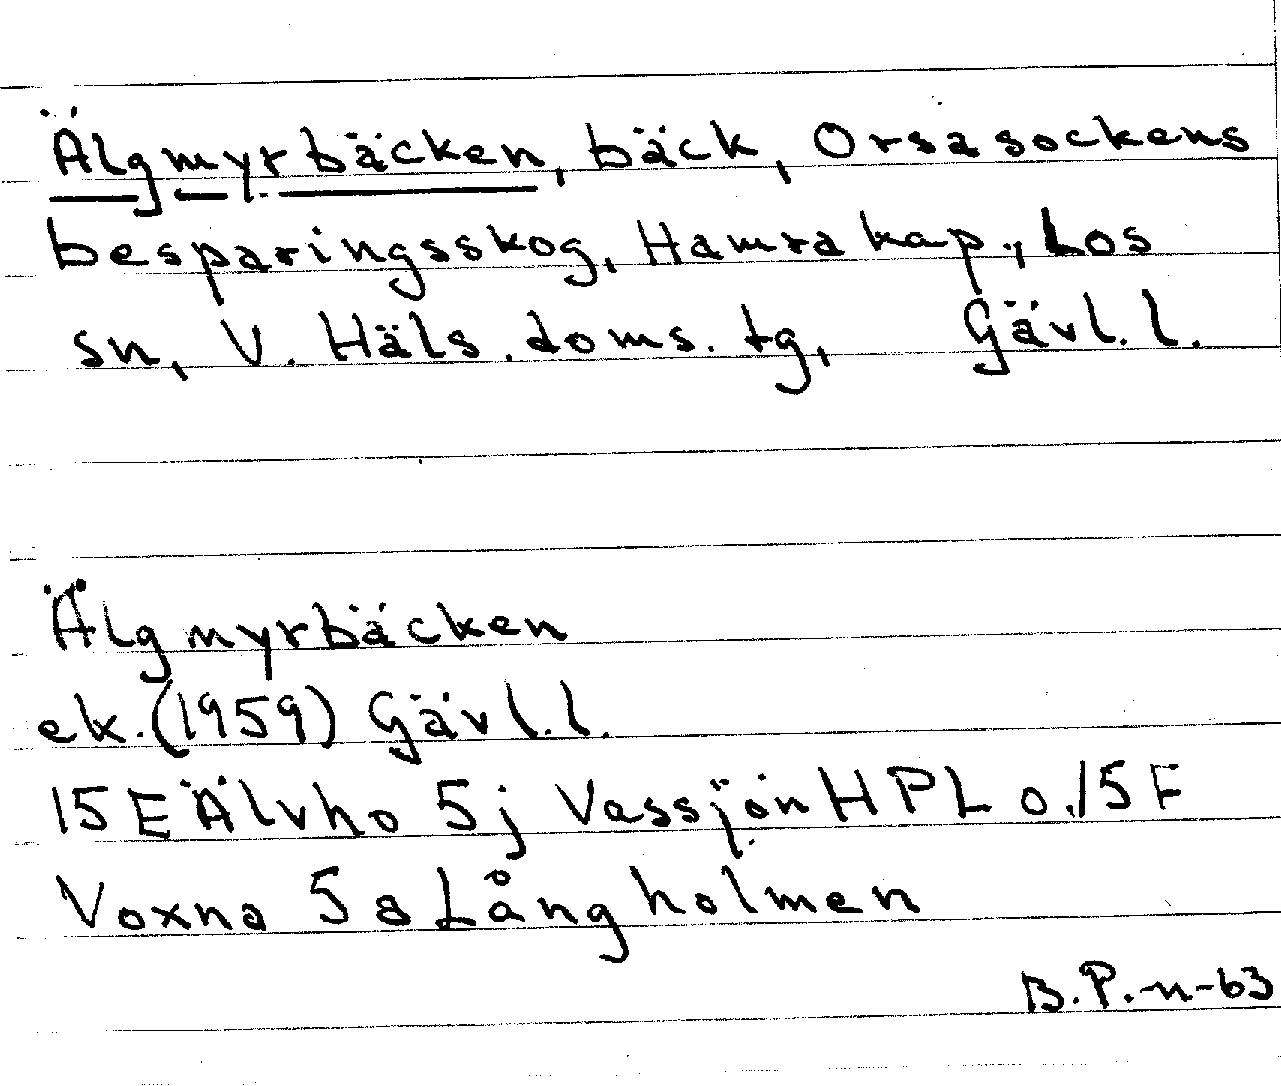 Älgmyrbäcken, bäck, Orsasockens
besparingsskog, Hamra kap., Los
sn, V. Häls. doms. tg, Gävl. l.
Älgmyrbäcken
ek. (1959) Gävl. l.
15E Älvho 5j Vassjön HPL o. 15F
Voxna 5a Långholmen
B.P-n-63